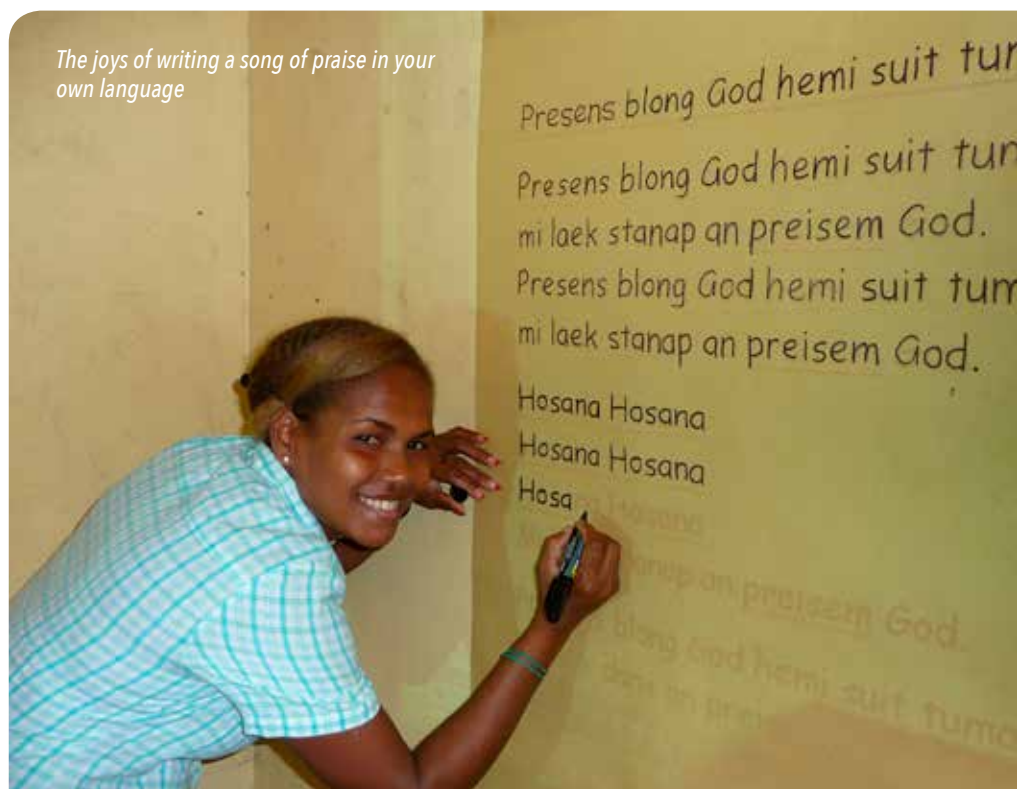 The joys of writing a song of praise in your
own language
Presens blong God hemi suit
Presens blong God hemi suit
mi laek stanap an preisem God.
Presens blong God hemi suit
mi laek stanap an preisem God.
Hosana Hosana
Hosana Hosana
Hosa
Hosana
an preisem God.
blong God hemi suit
an